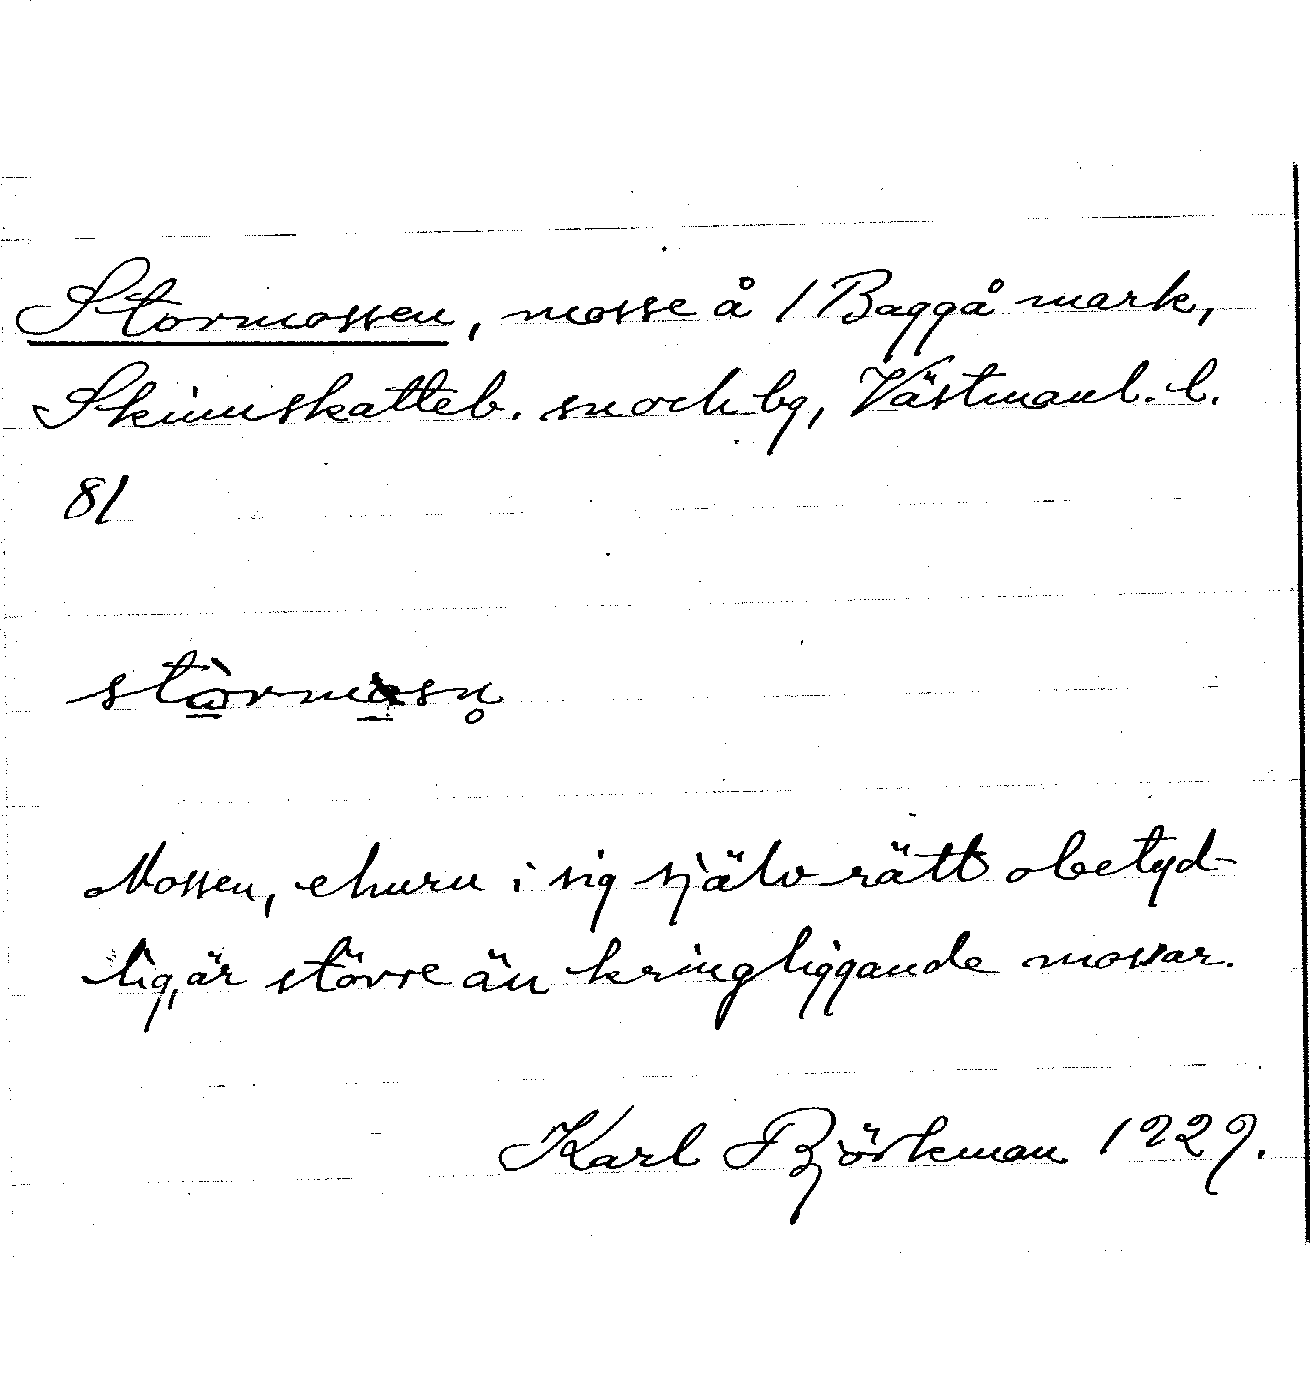 Stormossen, mosse å 1 Baggå mark,
Skinnskatteb. sn och bg, Västmanl. l.
81
stòrmosn̥
Mossen, ehuru i sig själv rätt obetyd-
lig, är större än kringliggande mossar.
Karl Björkman 1929.